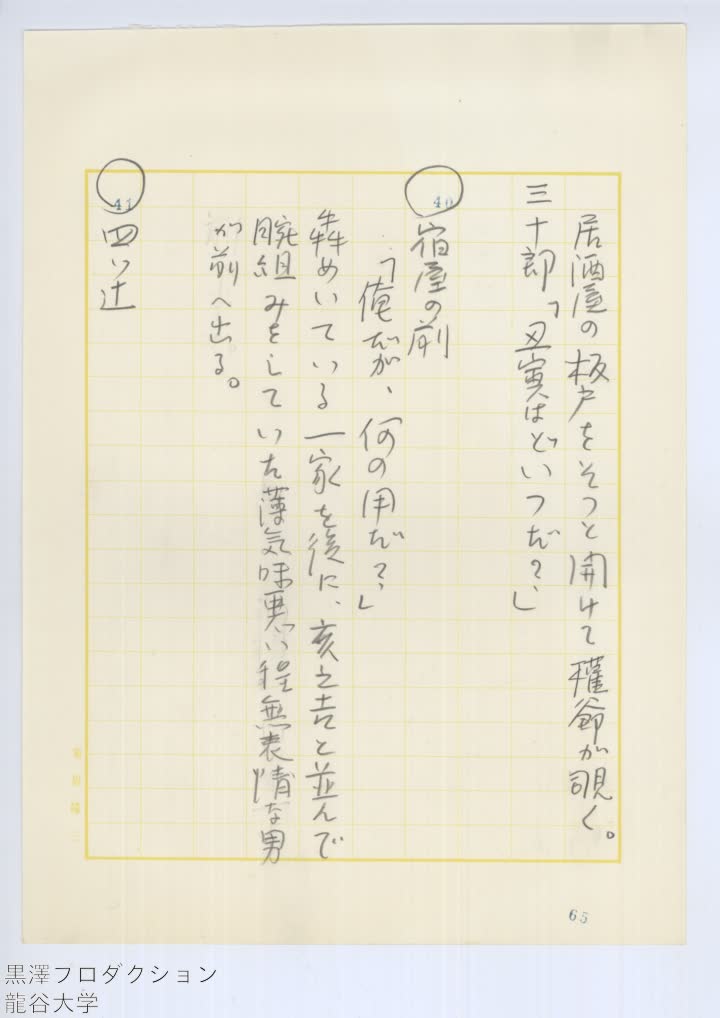 居酒屋の板戸をそっと開けて権爺が覗く。
三十郎「丑寅はどいつだ？」
40
宿屋の前
「俺だが、何の用だ？」
犇めいている一家を後に、亥之吉と並んで
腕組みをしていた薄気味悪い程無表情な男
が前へ出る。
41
四ツ辻
65
黒澤プロダクション
龍谷大学